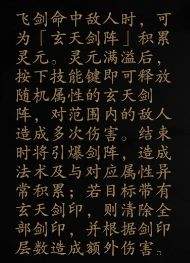 飞剑命中敌人时，可
为「玄天剑阵」积累
灵元。灵元满溢后，
按下技能键即可释放
随机属性的玄天剑
阵，对范围内的敌人
造成多次伤害。结束
时将引爆剑阵，造成
法术及与对应属性异
常积累；若目标带有
玄天剑印，则清除全
部剑印，并根据剑印
层数造成额外伤害。